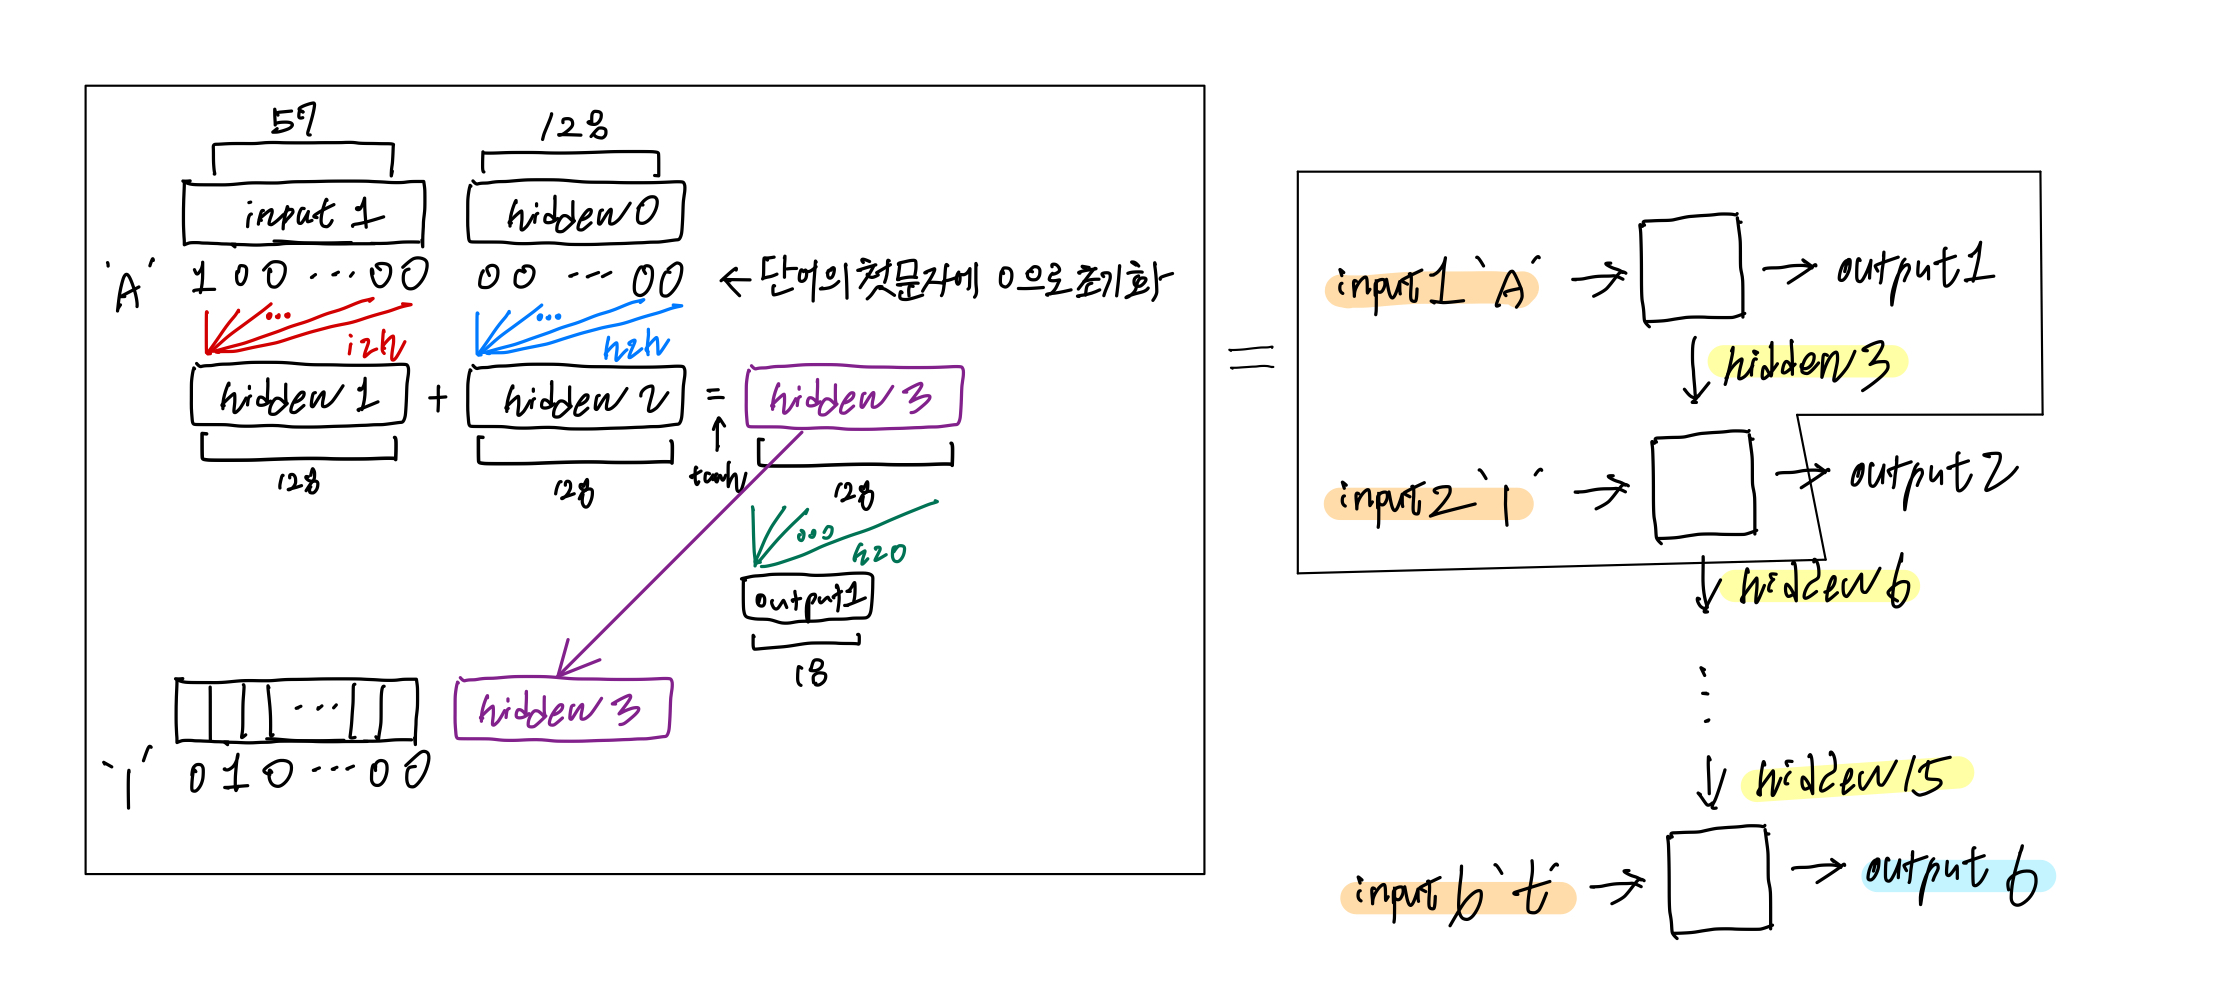 57
128
input 1
hidden 0
'A'
1 0 0 ... 0 0
0 0 ... 0 0
← 단어의 첫문자에 0으로 초기화
...
i2h
...
h2h
hidden 1 + hidden 2 = hidden 3
tanh
128
128
128
...
h2o
output1
18
...
hidden 3
'l'
0 1 0 ... 0 0
=
input 1 'A' → → output 1
↓ hidden 3
input 2 'l' → → output 2
↓ hidden 6
⋮
↓ hidden 15
input 6 't' → → output 6